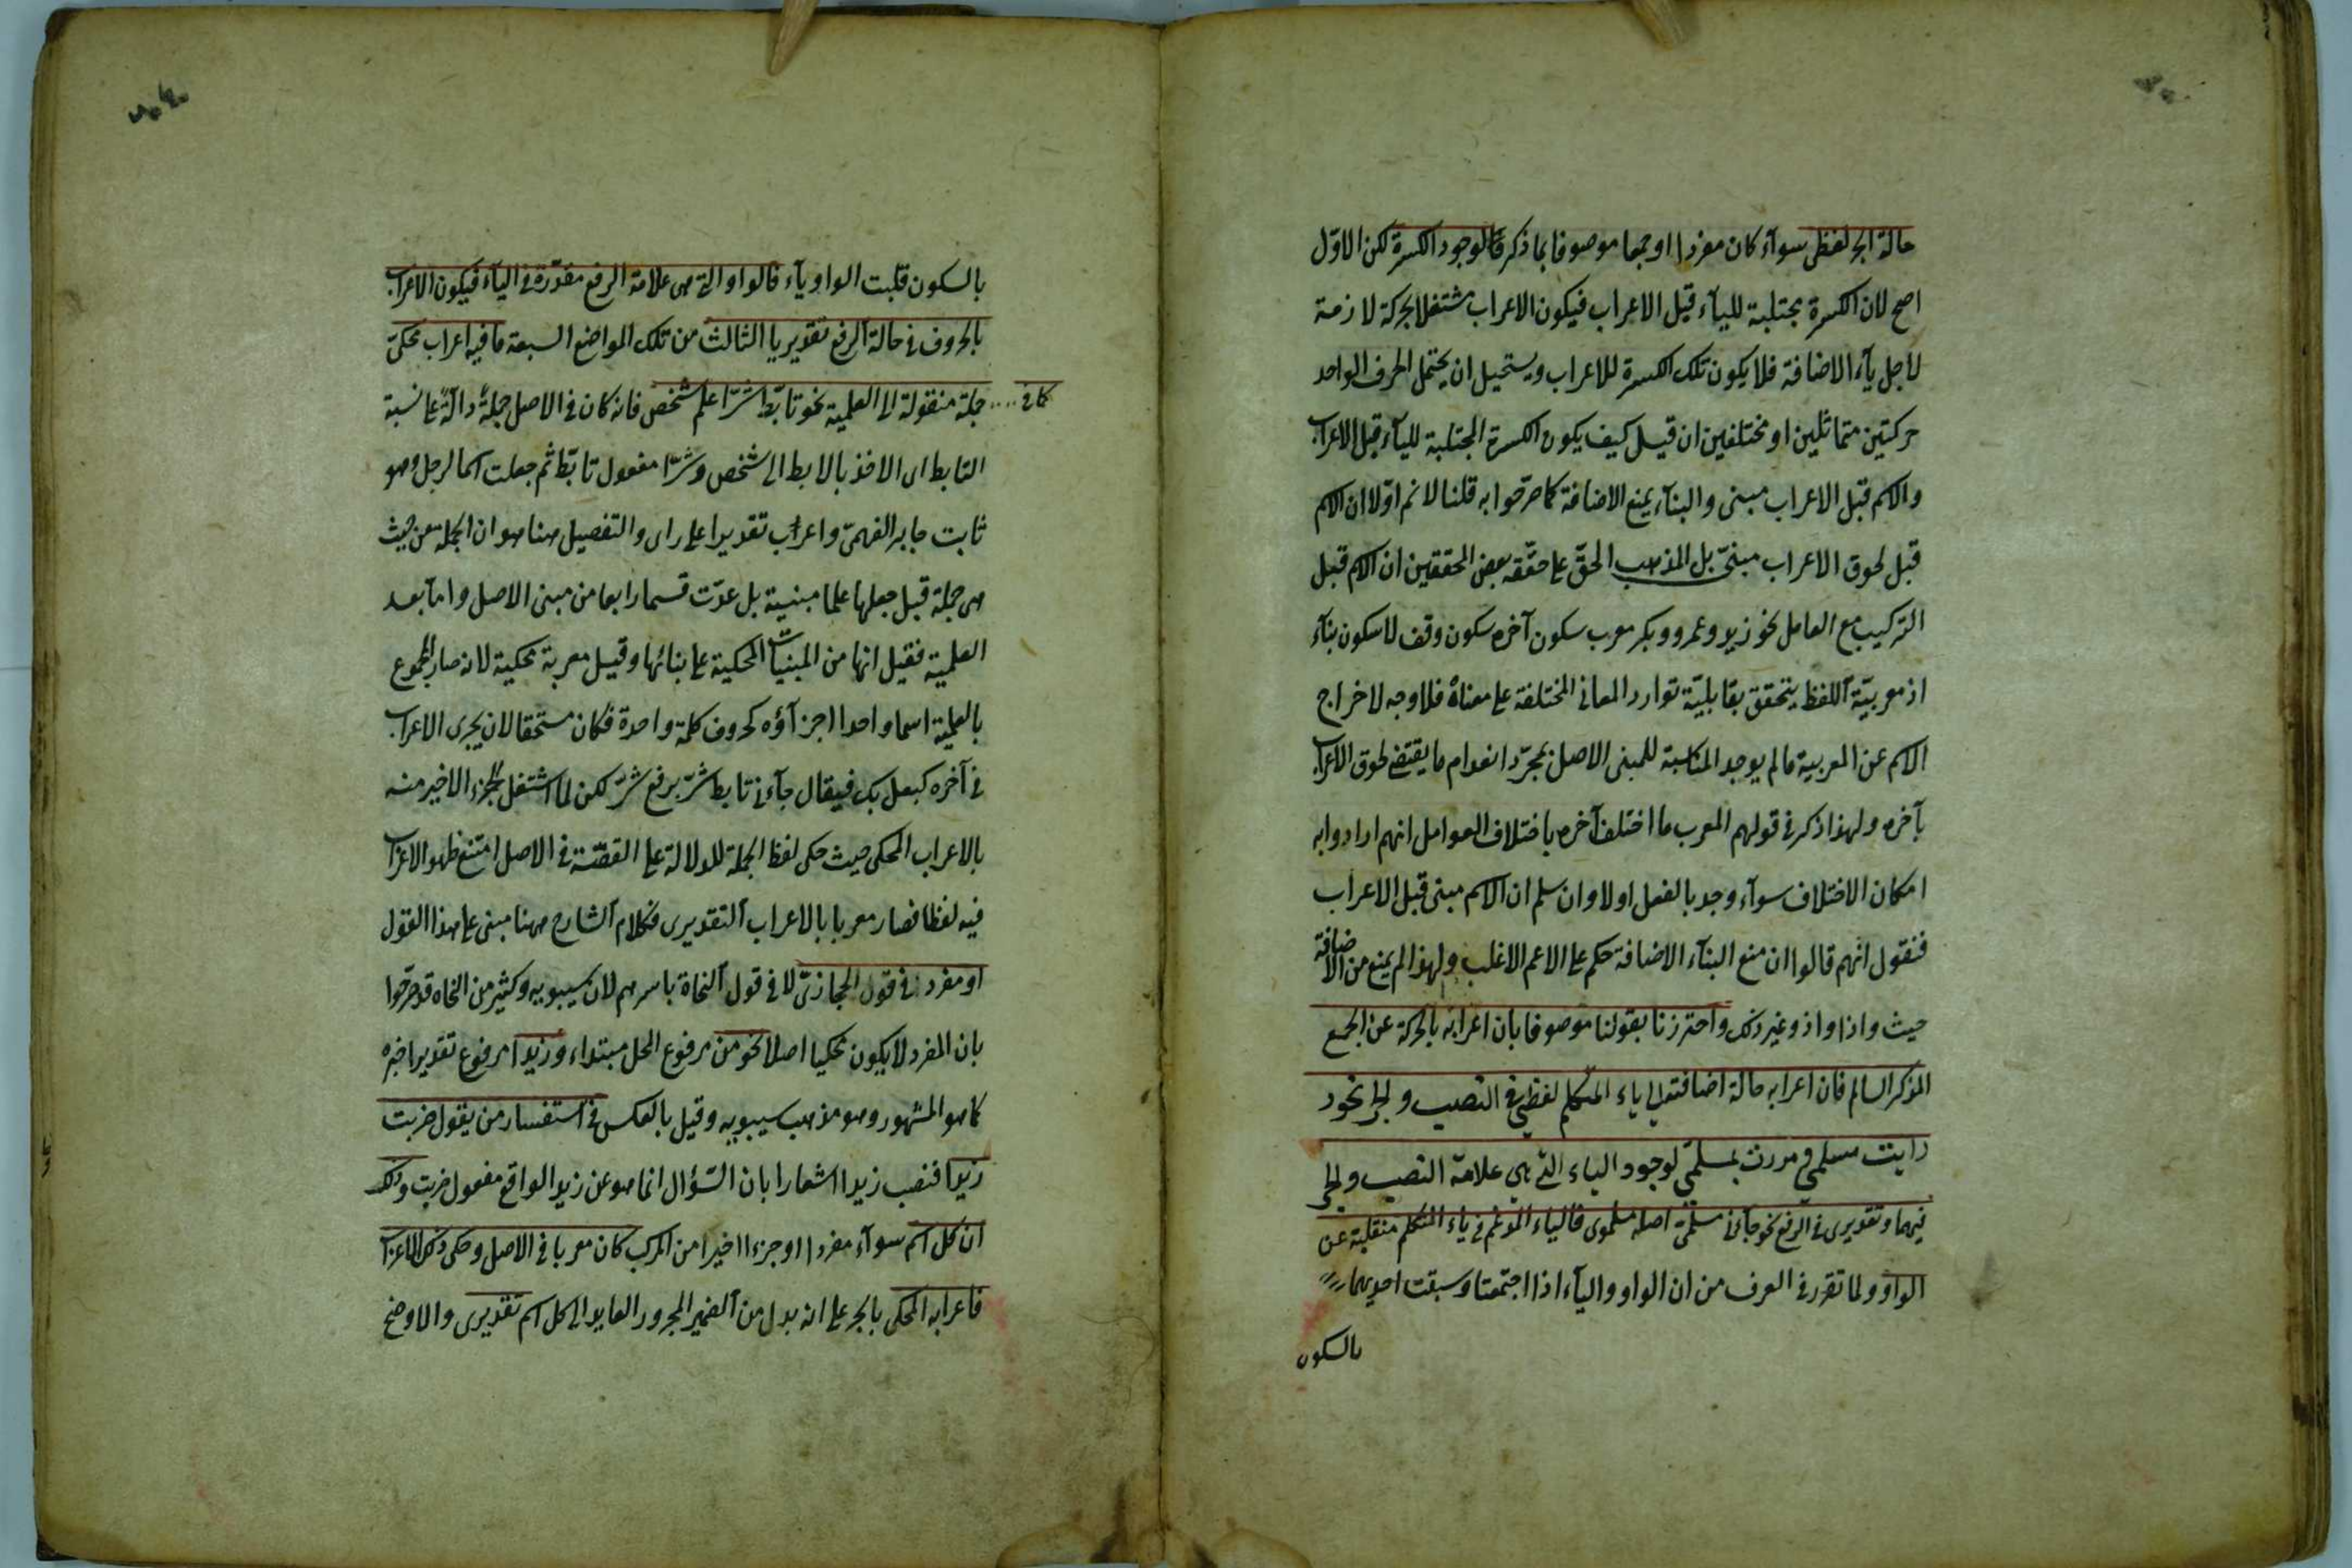 حالة الجر لفظى سوآء كان مفردا او جمعا موصوفا بما ذكر قالوا لوجود الكسرة لكن الاوّل
اصح لان الكسرة مجتلبة لليآء قبل الاعراب فيكون الاعراب مشتغلا بحركة لازمة
لاجل يآء الاضافة فلا يكون تلك الكسرة للاعراب ويستحيل ان يحتمل الحرف الواحد
حركتين متماثلين او مختلفين ان قيل كيف يكون الكسرة المجتلبة لليآء قبل الاعراب
والاسم قبل الاعراب مبنى والبنآء يمنع الاضافة كما صرّحوا به قلنا لا نم اوّلا ان الاسم
قبل لحوق الاعراب مبنىّ بل المذهب الحقّ على ما حقّقه بعض المحققين ان الاسم قبل
التركيب مع العامل نحو زيد وعمرو وبكر معرب سكون آخره سكون وقف لا سكون بنآء
اذ معربيّة اللفظ يتحقق بقابليّة توارد المعانى المختلفة على معناه فلا وجه لاخراج
الاسم عن المعربية ما لم يوجد المناسبة للمبنى الاصل بمجرّد انعدام ما يقتضى لحوق الاعراب
بآخره ولهذا ذكر فى قولهم المعرب ما اختلف آخره باختلاف العوامل انهم ارادوا به
امكان الاختلاف سوآء وجد بالفعل اولا وان سلم ان الاسم مبنى قبل الاعراب
فنقول انهم قالوا ان منع البنآء الاضافة حكم على الاعم الاغلب ولهذا لم يمنع من الاضافة
حيث واذا واذ وغير ذلك واحترزنا بقولنا موصوفا بان اعرابه بالحركة عن الجمع
المذكر السالم فان اعرابه حالة اضافته الى ياء المتكلم لفظى فى النصب والجر نحو
رايت مسلمى ومررت بمسلمى لوجود الياء التى هى علامة النصب والجر
فيهما وتقديرى فى الرفع نحو جآءنى مسلمىّ اصله مسلموى فالياء المدغم فى ياء المتكلم منقلبة عن
الواو ولما تقرر فى الصرف من ان الواو واليآء اذا اجتمعتا وسبقت احديهما
بالسكون
بالسكون قلبت الواو يآء فالواو التى هى علامة الرفع مقدّرة فى اليآء فيكون الاعراب
بالحروف فى حالة الرفع تقديريا الثالث من تلك المواضع السبعة ما فيه اعراب محكىّ
كما فى جملة منقولة الى العلمية نحو تابّط شرّا علم شخص فانه كان فى الاصل جملةً دالّةً على نسبة
التابط اى الاخذ بالابط الى شخص وشرّا مفعول تابّط ثم جعلت اسما لرجل وهو
ثابت جابر الفهمىّ واعراب تقديرا على راى والتفصيل هنا هو ان الجملة من حيث
هى جملة قبل جعلها علما مبنية بل عدّت قسما رابعا من مبنى الاصل واما بعد
العلمية فقيل انها من المبنيات المحكية على بنائها وقيل معربة محكية لانه صار المجموع
بالعلمية اسما واحدا اجزآؤه كحروف كلمة واحدة فكان مستحقا لان يجرى الاعراب
فى آخره كبعلبك فيقال جآءنى تابط شرّ برفع شرّ لكن لما اشتغل الجزء الاخير منه
بالاعراب المحكى حيث حكى لفظ الجملة للدلالة على القصّة فى الاصل امتنع ظهور الاعراب
فيه لفظا فصار معربا بالاعراب التقديرى فكلام الشارح ههنا مبنى على هذا القول
او مفرد فى قول الحجازىّ لا فى قول النحاة باسرهم لان سيبويه وكثير من النحاة قد صرّحوا
بان المفرد لا يكون محكيا اصلا نحو من مرفوع المحل مبتداء وزيدا مرفوع تقديرا خبره
كما هو المشهور وهو مذهب سيبويه وقيل بالعكس فى استفسار من يقول ضربت
زيدا فنصب زيدا اشعارا بان السّؤال انما هو عن زيد الواقع مفعول ضربت وذلك
ان كل اسم سوآء مفردا او جزءا اخيرا من المركب كان معربا فى الاصل وحكى ذلك الاعراب
فاعرابه المحكى بالجر على انه بدل من الضمير المجرور العايد الى كل اسم تقديرى والاوضح